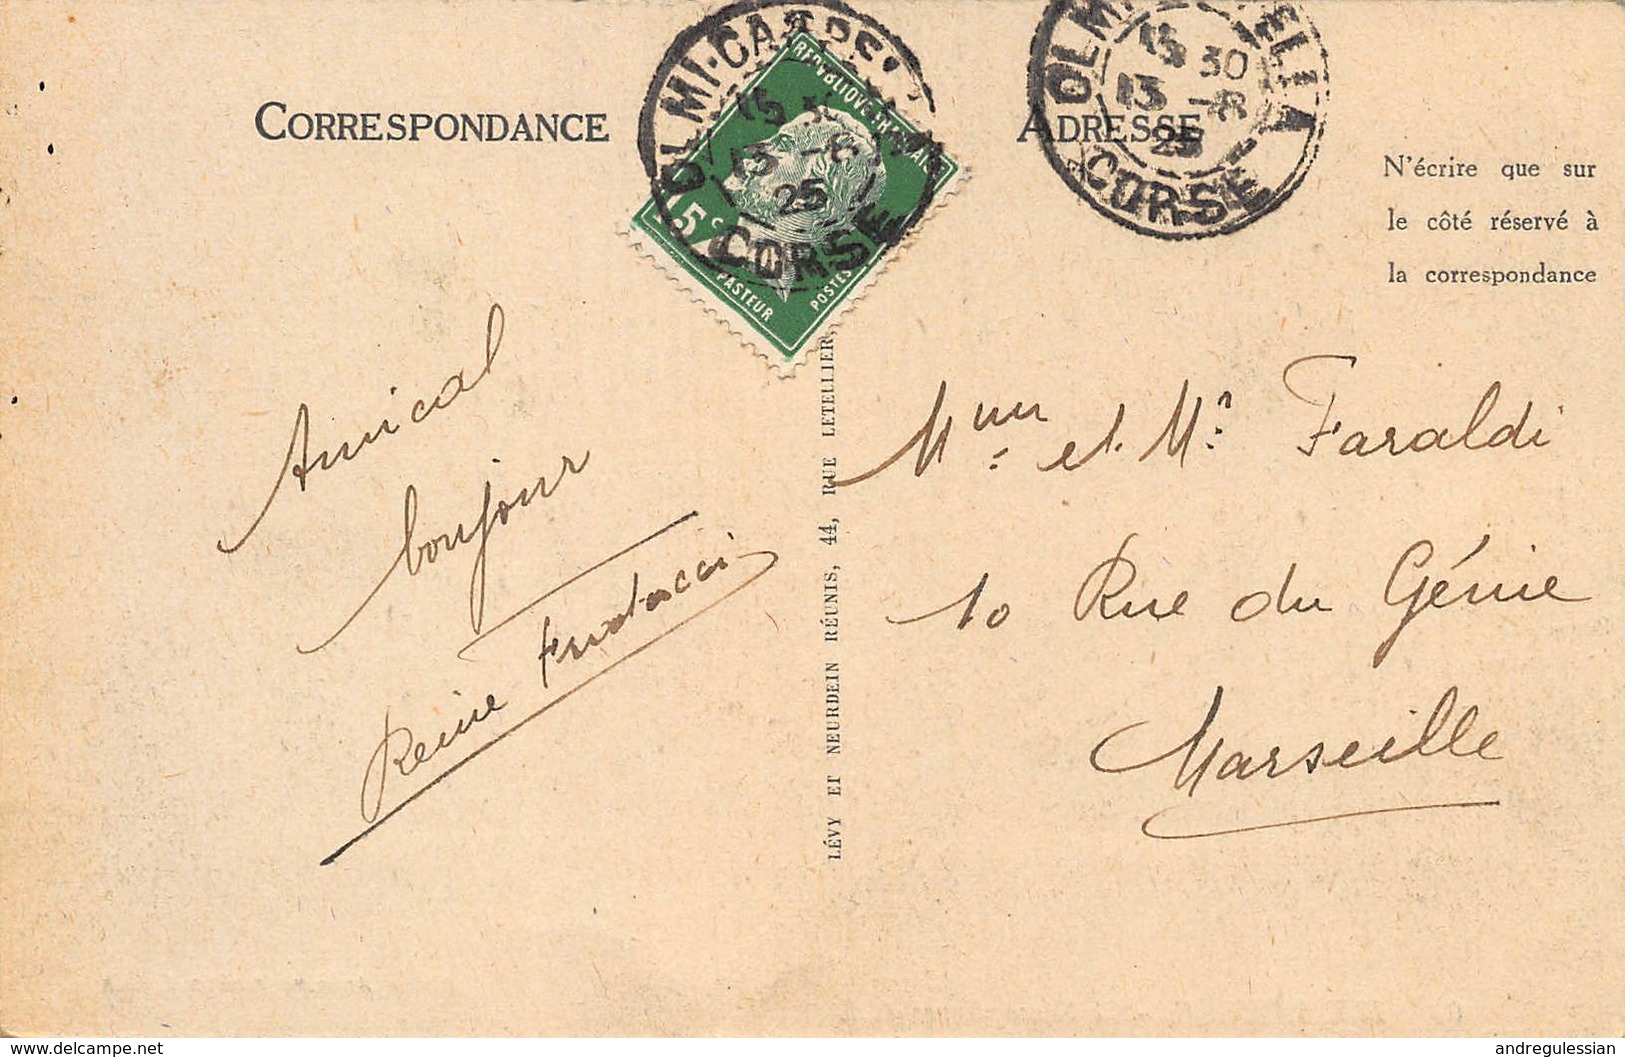 CORRESPONDANCE
ADRESSE
N'écrire que sur
le côté réservé à
la correspondance
OLMI-CAPPELLA
15 30
13 -8
25
CORSE
RÉPUBLIQUE FRANÇAISE
15c
PASTEUR
POSTES
OLMI-CAPPELLA
15 30
13 -8
25
CORSE
Amical
bonjour
Reine
LÉVY ET NEURDEIN RÉUNIS, 44, RUE LETELLIER,
Mme et Mr Faraldi
10 Rue du Génie
Marseille
www.delcampe.net
andregulessian